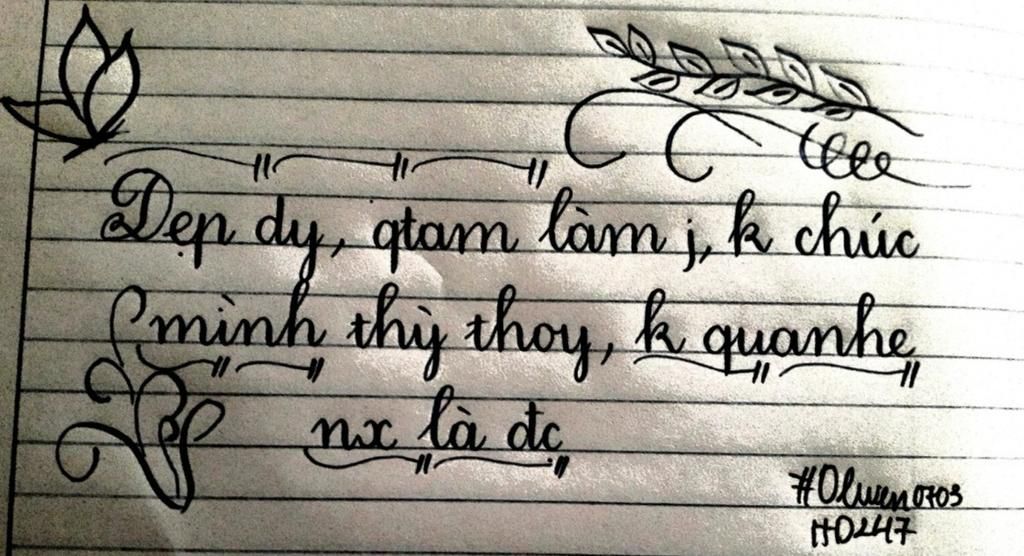 Dẹp dy, qtam làm j, k chúc
mình thỳ thoy, k quanhe
nx là đc
#Olwen0703